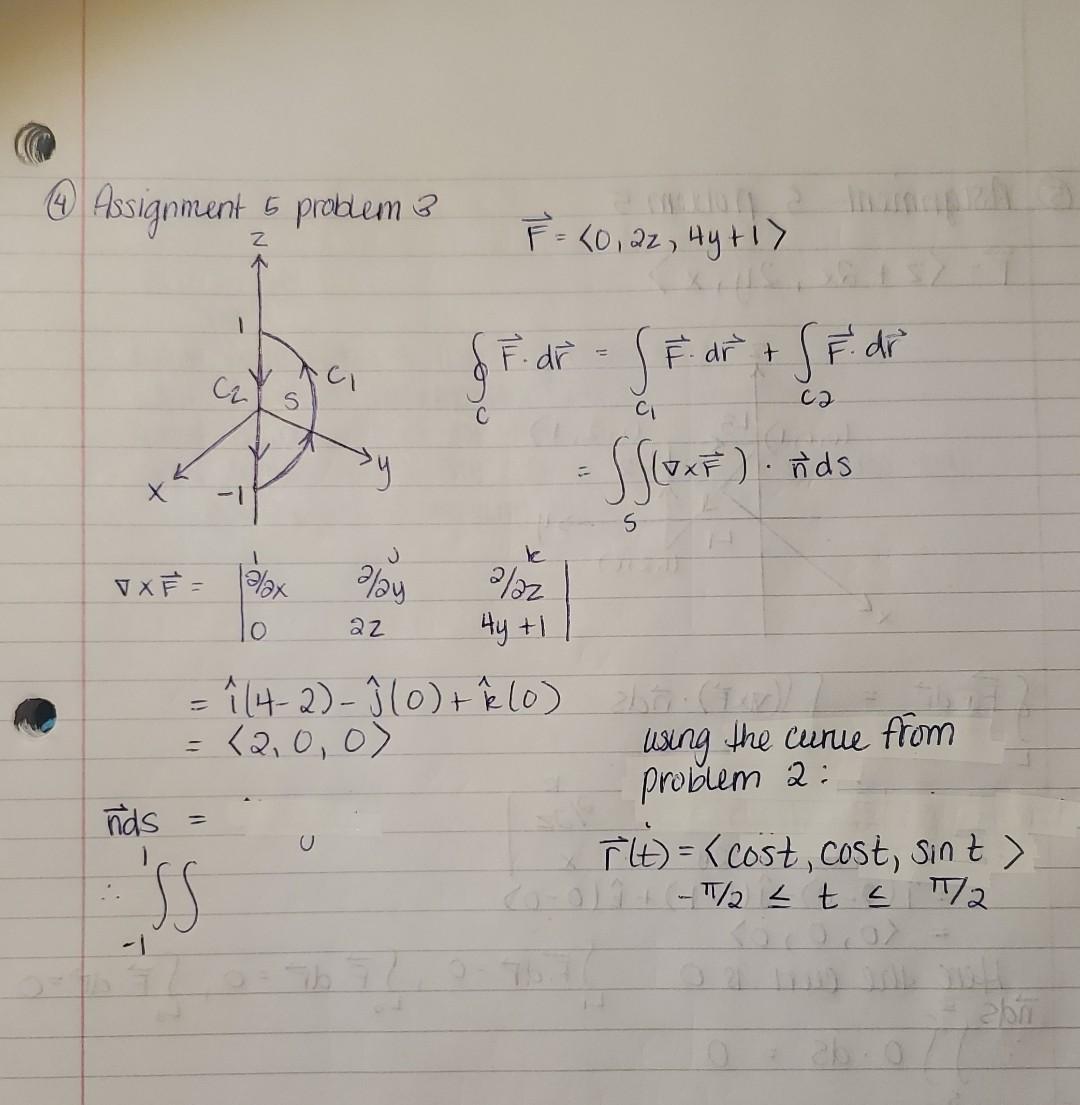 ④ Assignment 5 problem 3
F⃗ = <0, 2z, 4y+1>
z
1
C2
S
C1
x
y
-1
∮_C F⃗ · dr⃗ = ∫_C1 F⃗ · dr⃗ + ∫_C2 F⃗ · dr⃗
= ∫∫_S (∇×F⃗) · n⃗ ds
i j k
∇×F⃗ = |∂/∂x ∂/∂y ∂/∂z|
|0 2z 4y+1|
= î(4-2) - ĵ(0) + k̂(0)
= <2, 0, 0>
using the curve from
problem 2:
n⃗ds =
r⃗(t) = <cost, cost, sin t>
-π/2 ≤ t ≤ π/2
∴ ∫_{-1}^{1} ∫